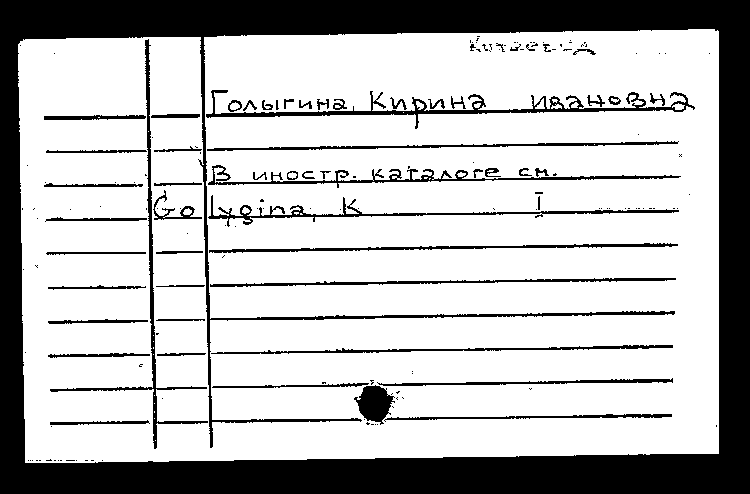 Китаевед
Голыгина, Кирина ивановна
В иностр. каталоге см.
Golygina, K I